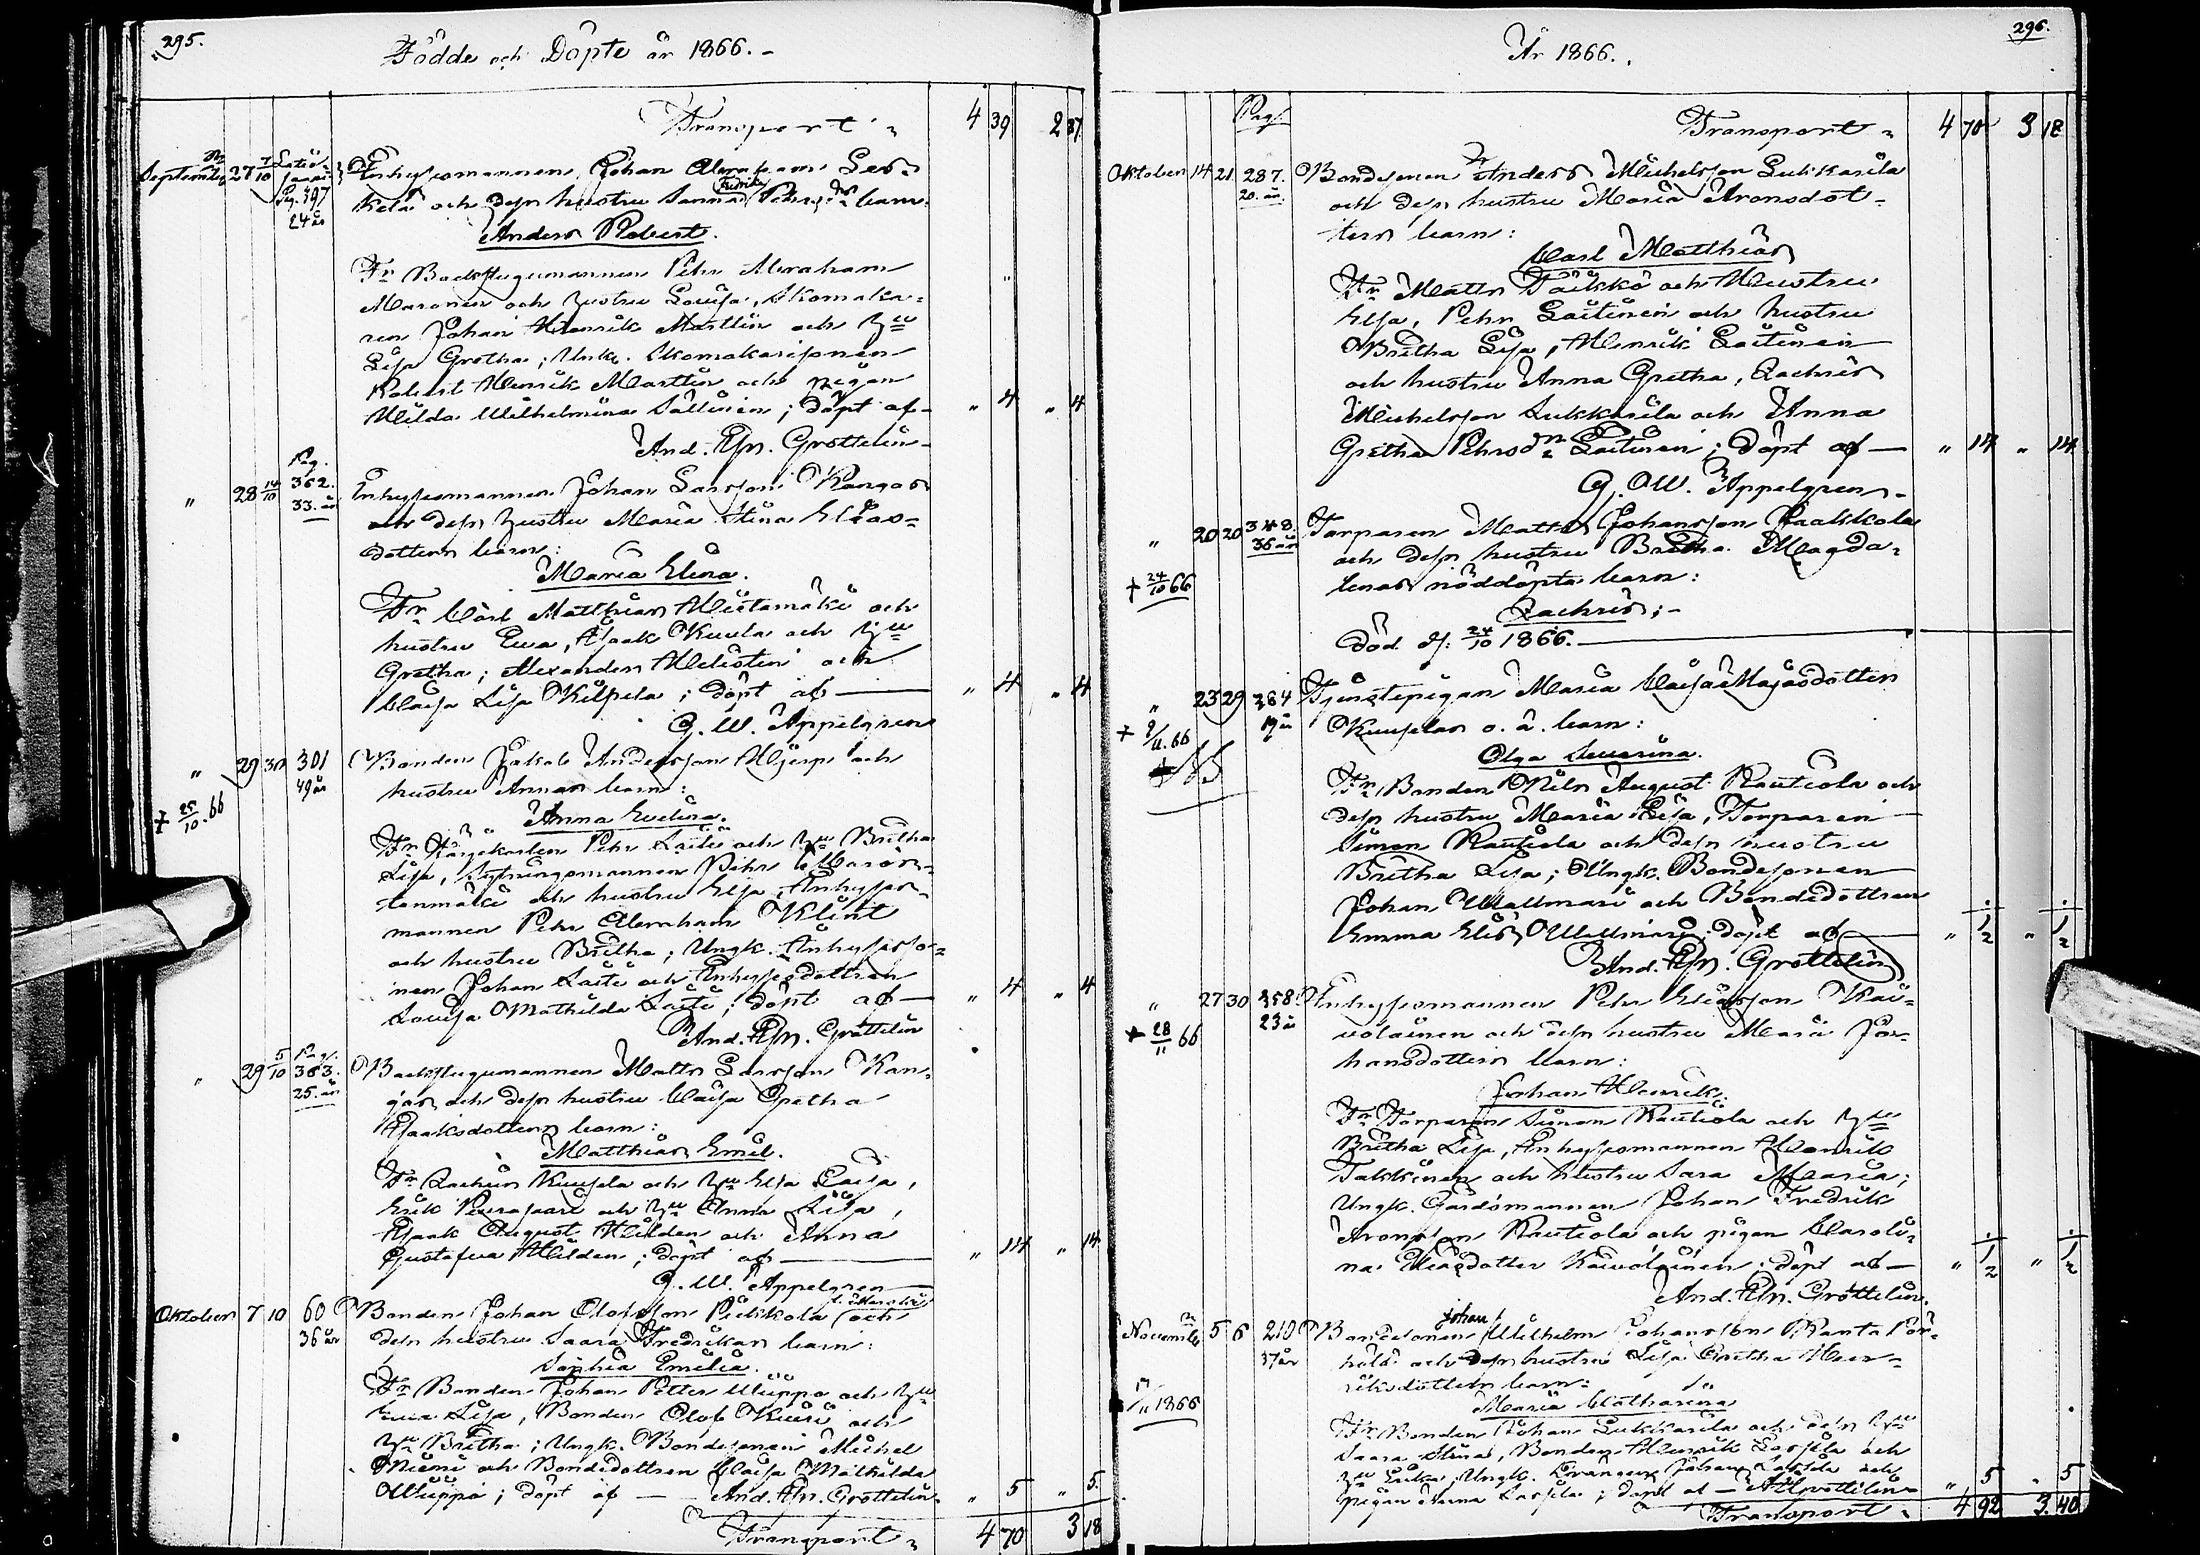 295.
Födde och Döpte år 1866.
Transport
4 39 2 87
September 27 7/10
Pag. 397
24 år
Inhysesmannen Johan Abraham
och dess hustru Sanna Fredrika barn:
Anders Robert.
Fr. Backstugumannen Pehr Abraham
och hustru Lovisa, Skomaka-
ren Johan Henrik Martlin och Hu
Lisa Gretha; Ungk. Skomakaresonen
Robert Henrik Martlin och pigan
Hilda Wilhelmina Sallinen; döpt af
" 4 " 4
And. Joh. Grottelin
" 28 14/10
Pag.
362.
33. år
Inhysesmannen Johan Larsson Kangas
och dess hustru Maria Stina Elias-
dotters barn:
Maria Elina.
Fr. Carl Matthias Hietamäki och
hustru Eva, Isaak Kuula och Hu
Gretha; Alexander Helistén och
Caisa Lisa Kilpela; döpt af
" 4 " 4
G. W. Appelgren
" 29 30 301
49 år
+ 25/10. 66
Bonden Jakob Andersson Hjerpe och
hustru Annas barn:
Anna Evelina.
Fr. Färjekarlen Pehr Laiti och Hu Britha
Lisa, Sytningsmannen Pehr
och hustru Elsa, Inhyses-
mannen Pehr Abraham Klint
och hustru Britha; Ungk. Inhysesso-
nen Johan Laiti och Inhysesdottren
Lovisa Mathilda Laiti; döpt af
" 4 " 4
And. Joh. Grottelin
" 29 5/10
Pag.
363.
25. år
Backstugumannen Matts Larsson Kan-
gas och dess hustru Caisa Gretha
Isaaksdotters barn:
Matthias Emil.
Fr. Zachris Kuusela och Hu Elsa Caisa,
Erik Peurasaari och Hu Anna Lisa,
Isaak August Hildén och Anna
Gustafva Hildén; döpt af
" 14 " 14
G. W. Appelgren
Oktober 7 10 60
36 år
Bonden Johan Olofsson Pietikola och
dess hustru Saara Fredrikas barn:
Sophia Emilia.
Fr. Bonden Johan Petter Wiippo och Hu
Lisa, Bonden Olof Kiuri och
Hu Britha; Ungk. Bondesonen Michel
Niemi och Bondedottren Caisa Mathilda
Wiippo; döpt af — And. Joh. Grottelin
" 5 " 5.
Transport
4 70 3 18
296.
År 1866.
Pag.
Transport
4 70 3 18
Oktober 14 21 287.
20. år.
Bondesonen Anders Michelsson Lukkarila
och dess hustru Maria Aronsdot-
ters barn:
Carl Matthias
Fr. Matts Töikkö och Hustru
Elsa, Pehr Laitinen och hustru
Britha Lisa, Henrik Laitinen
och hustru Anna Gretha, Zachris
Michelsson Lukkarila och Anna
Gretha Pehrsdr Laitinen; döpt af
" 14 " 14
G. W. Appelgren
" 20 20 348.
36 år
+ 24/10 66
Torparen Matts Johansson Jaakkola
och dess hustru Britha Magda-
lenas nöddöpta barn:
Zachris;
Död d. 24/10 1866.
" 23 29 264
19 år
+ 9/11. 66
Tjenstepigan Maria Caisa Majasdotter
Kuuselas o. ä. barn:
Olga Severina.
Fr. Bonden Nils August Rautiola och
dess hustru Maria Lisa, Torparen
Simon Rautiola och dess hustru
Britha Lisa; Ungk. Bondesonen
Johan Wallmari och Bondedottren
Emma Elis Wallmari; döpt af
" 1/2 " 1/2
And. Joh. Grottelin
" 27 30 358.
23 år
+ 28/11 66
Inhysesmannen Pehr Eliasson Kai-
volainen och dess hustru Maria Jo-
hansdotters barn:
Johan Henrik.
Fr. Torparen Simon Rautiola och Hu
Britha Lisa, Inhysesmannen Henrik
Takkinen och Hustru Sara Maria;
Ungk. Gårdsmannen Johan Fredrik
Aronsson Rautiola och pigan Caroli-
na Eliasdotter Kaivolainen; döpt af
" 1/2 " 1/2
And. Joh. Grottelin
November 5 6 210
37 år
17/11 1866
Bondesonen Johan Wilhelm Johansson Ranta Pör-
hölä och dess hustru Lisa Gretha Hen-
riksdotters barn:
Maria Catharina
Fr. Bonden Johan Lukkarila och dess Hu
Saara Stina, Bonden Henrik Lassila och
Hu Ungk. Drängen Johan Lassila och
pigan Anna Lassila; döpt af — A. Grottelin
" 5 " 5
Transport
4 92 3. 40